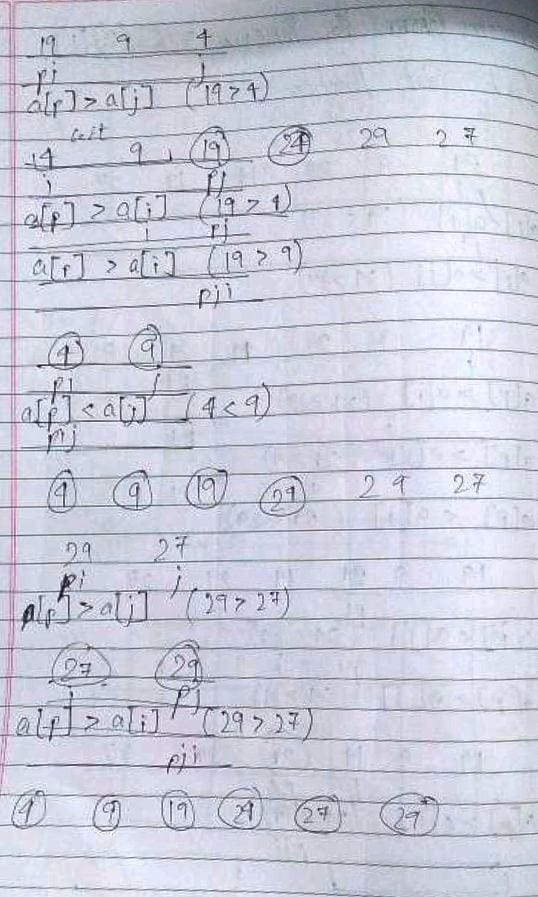 19 9 4
pi j
a[p] > a[j] (19>4)
left
4 9 19 24 29 27
i pj
a[p] > a[i] (19 > 4)
i pj
a[p] > a[i] (19 > 9)
pji
4 9
pi j
a[p] < a[j] (4 < 9)
pij
4 9 19 24 29 27
29 27
pi j
a[p] > a[j] (29 > 27)
27 29
i pj
a[p] > a[i] (29 > 27)
pji
4 9 19 24 27 29